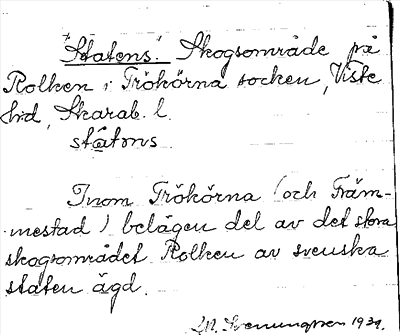 "Statens" Skogsområde på
Rolken i Trökörna socken, Viste
hrd, Skarab. l.
statns
Inom Trökörna (och Främ-
mestad) belägen del av det stora
skogsområdet Rolken av svenska
staten ägd.
1939.